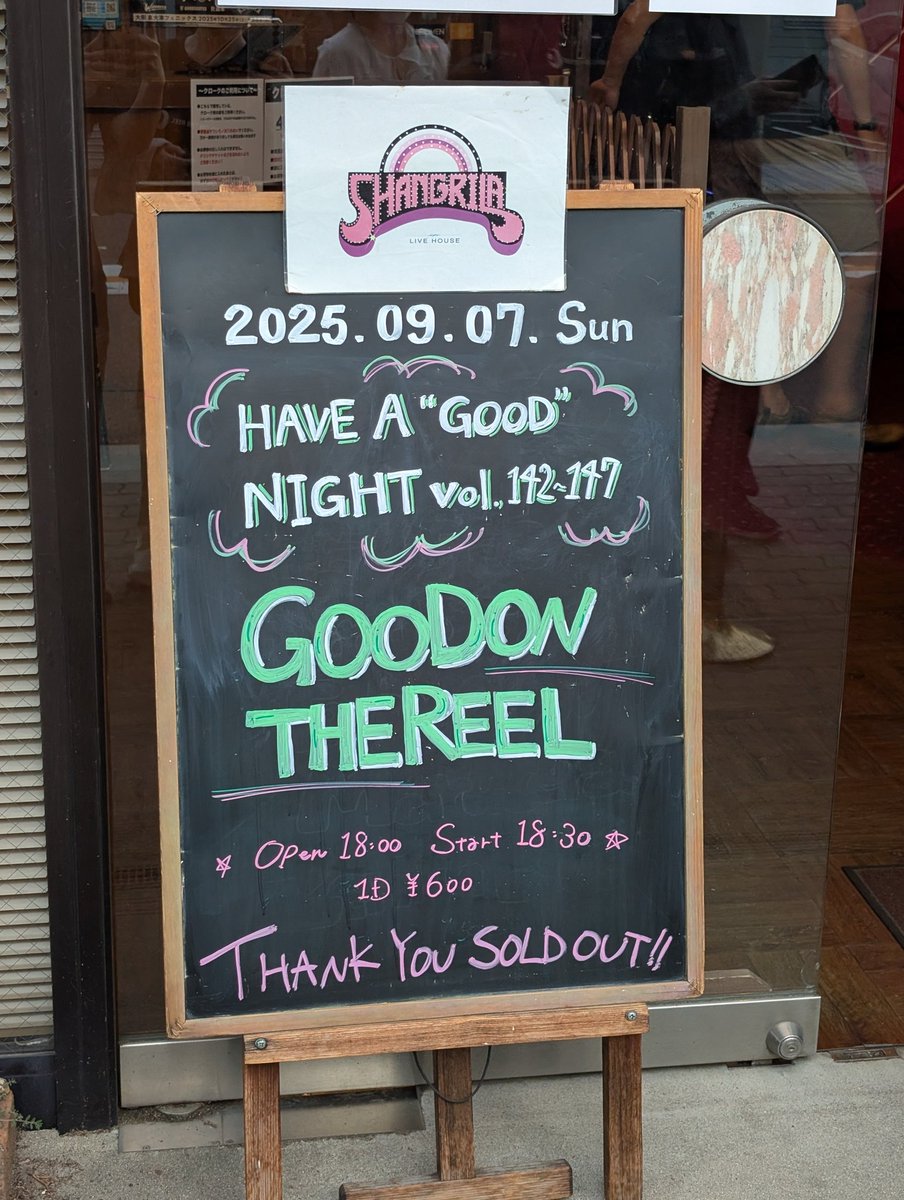 ~クロークのご利用について~
SHANGRILA
LIVE HOUSE
2025.09.07. Sun
HAVE A "GOOD"
NIGHT vol.142~147
GOODON
THEREEL
☆ Open 18:00 Start 18:30 ☆
1D ¥600
THANK YOU SOLD OUT!!